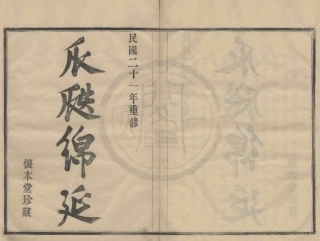 民國二十一年重修
瓜瓞綿延
懷本堂珍藏